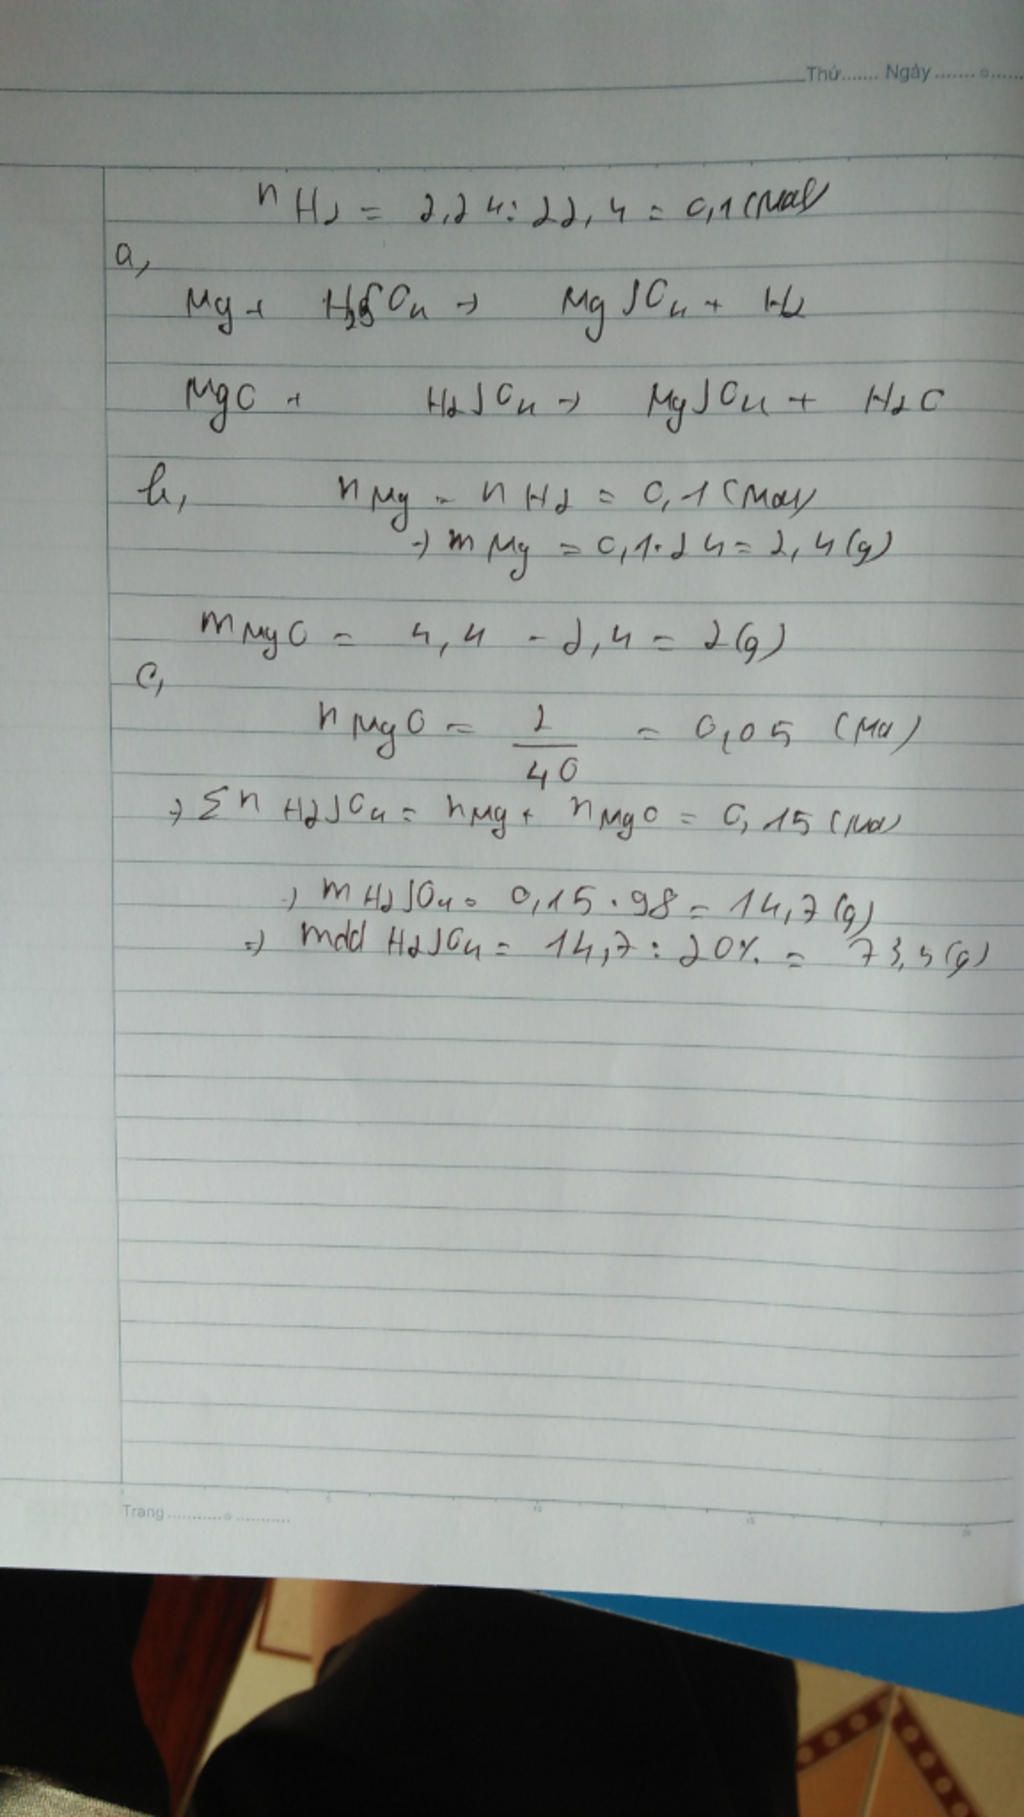 Thứ....... Ngày ....... 
nH2 = 2,24 : 22,4 = 0,1 (mol)
a,
Mg + H2SO4 → MgSO4 + H2
MgO + H2SO4 → MgSO4 + H2O
b, nMg = nH2 = 0,1 (mol)
→ mMg = 0,1 . 24 = 2,4 (g)
mMgO = 4,4 - 2,4 = 2 (g)
c,
nMgO = 2/40 = 0,05 (mol)
→ Σn H2SO4 = nMg + nMgO = 0,15 (mol)
→ mH2SO4 = 0,15 . 98 = 14,7 (g)
=> mdd H2SO4 = 14,7 : 20% = 73,5 (g)
Trang ....................